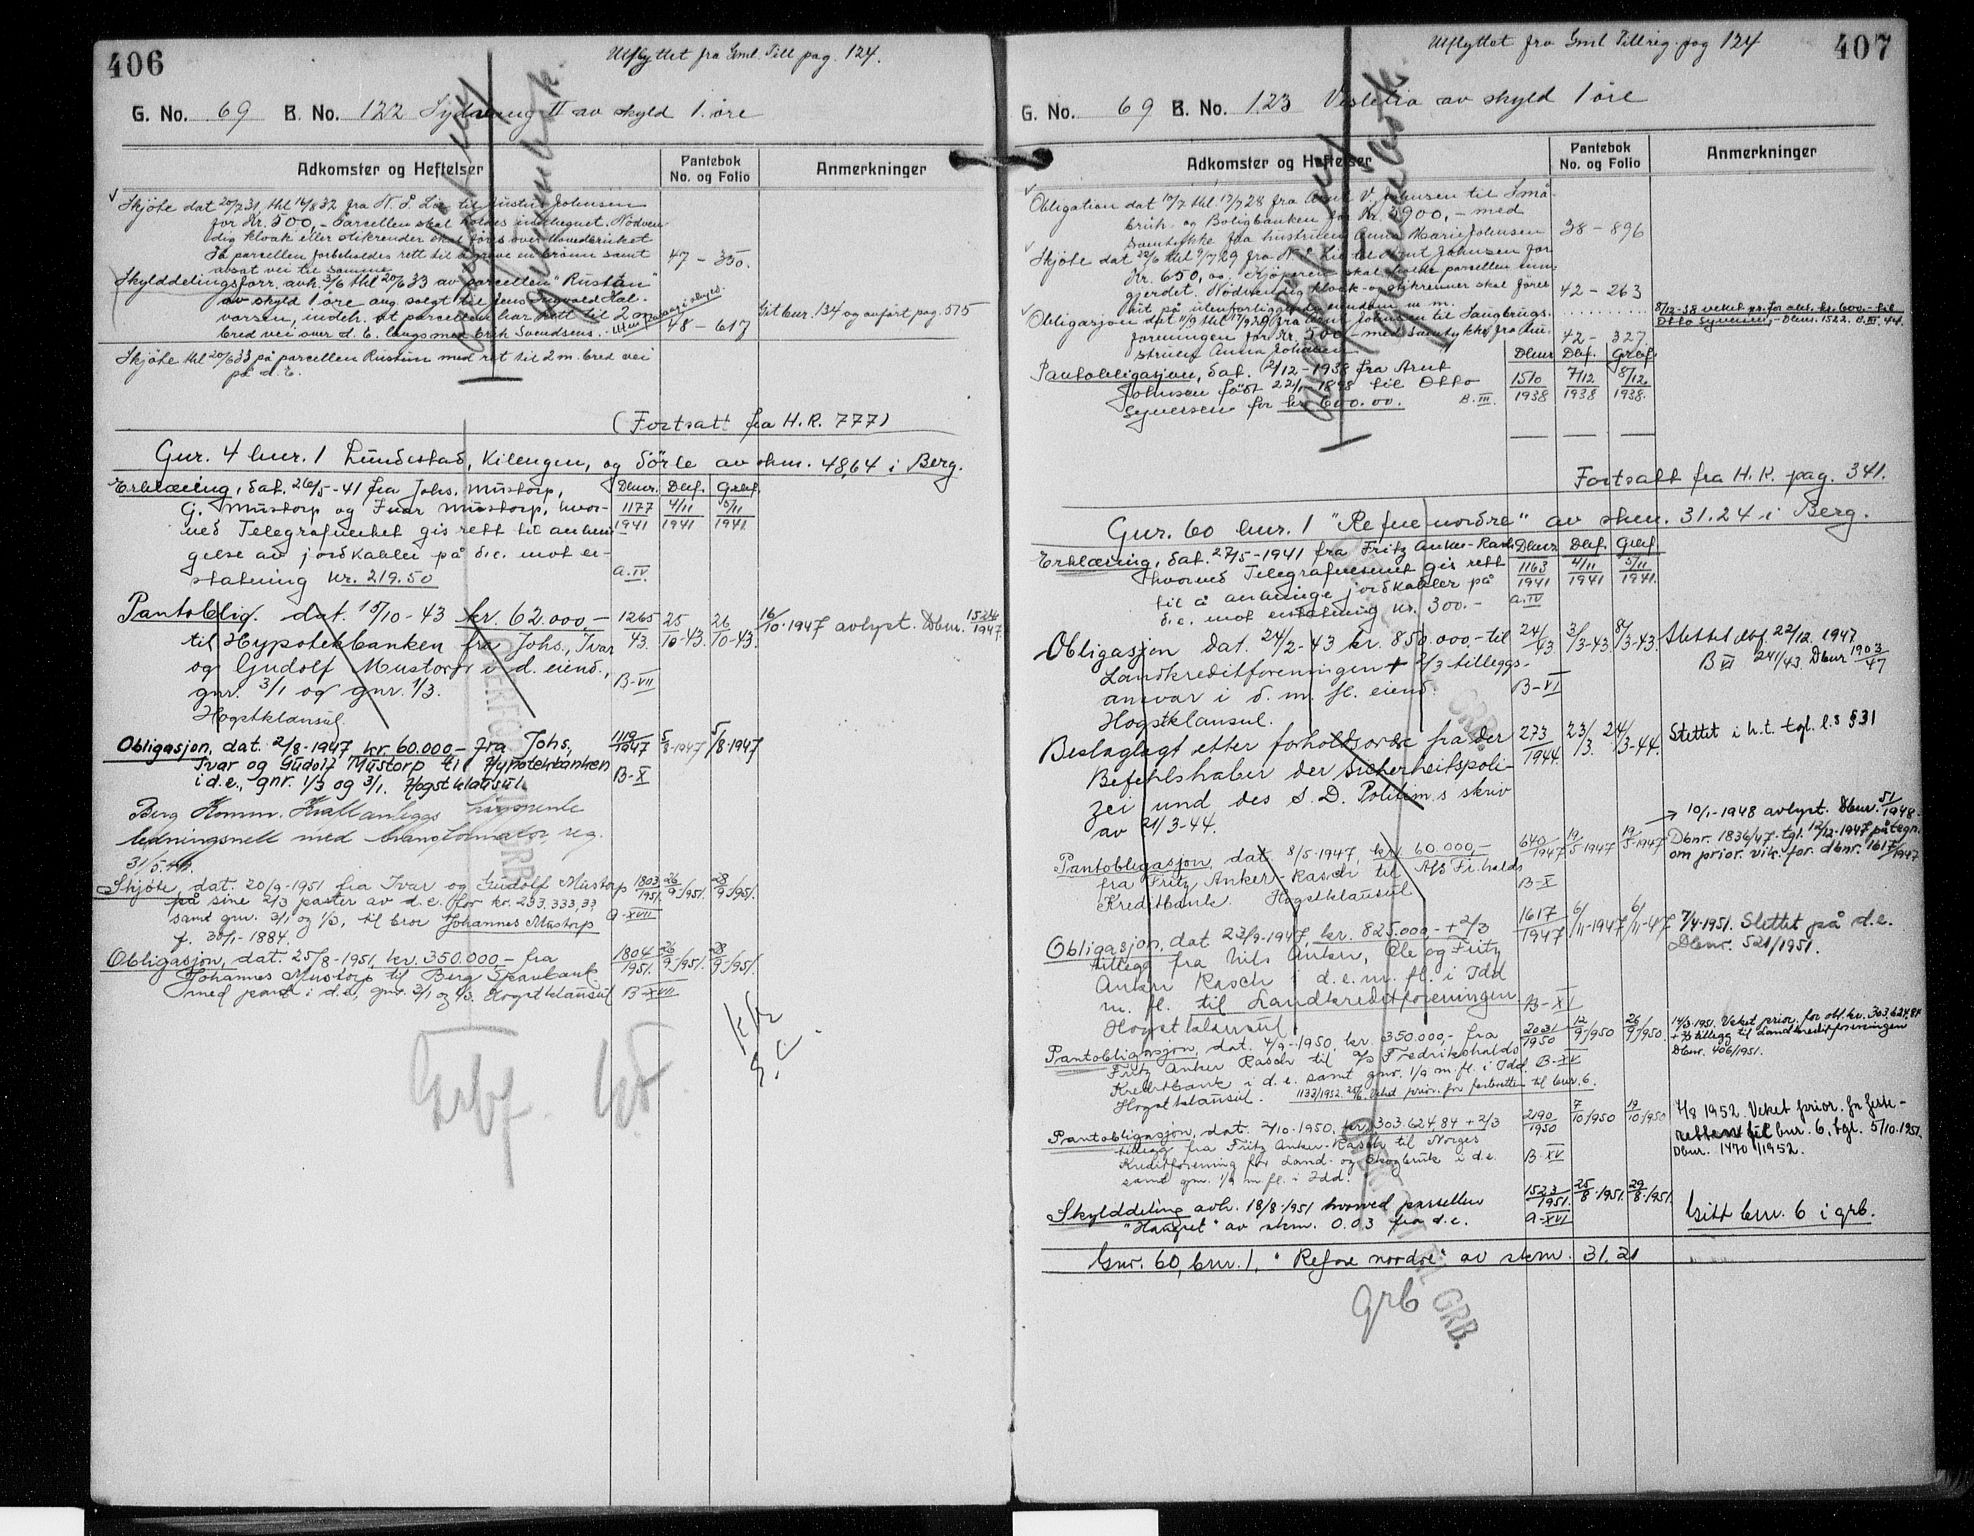 406
Utflyttet fra Gml. Till pag. 124.
G. No. 69 B. No. 122 II av skyld 1 øre
Adkomster og Heftelser
Pantebok
No. og Folio
Anmerkninger
Skjøte dat 20/7 31, thl 16/8 32 fra N. Lie til Johnsen
for Kr. 500,- Parcellen skal holdes indhegnet. Nødven
dig kloak eller stikrender skal føres over hovedbruket
parcellen forbeholdes rett til å grave en brønn samt
avsat vei til samme 47 - 350.
Skylddelingsforr. avh. 3/6 thl 20/6 33 av parcellen "Rustun"
av skyld 1 øre solgt til Jens Ingvald Hal-
vorsen, indeh. at parcellen har rett til 2 m
bred vei over d. e. langs med Erik Svendsens. 48 - 617
Git bnr. 134 og avført pag. 575
Skjøte thl 20/6 33 på parcellen Rustun med ret til 2 m. bred vei
på d. e.
(Fortsatt fra H.R. 777)
Gnr. 4 bnr. 1 Lundestad, Kilengen, og Sørle av skm. 48,64 i Berg.
Erklæring, dat. 26/5-41 fra Johs. Mustorp, Dbnr. Dbf. Grbf.
G. Mustorp og Ivar Mustorp, hvor- 1177/1941 4/11 1941 5/11 1941
ved Telegrafverket gis rett til anbrin-
gelse av jordkabler på d.e. mot er-
statning kr. 219.50 A.IV.
Pantoblig. dat. 15/10-43 kr. 62.000,- 1265/43. 25/10-43. 26/10-43. 16/10-1947 avlyst. Dbnr. 1524/1947.
til Hypotekbanken fra Johs., Ivar
og Gudolf Mustorp i d. eiend.,
gnr. 3/1 og gnr. 1/3. B-VII
Hogstklausul
Obligasjon, dat. 2/8-1947 kr. 60.000,- fra Johs, 1119/1947 5/8-1947 5/8-1947
Ivar og Gudolf Mustorp til Hypotekbanken
i d.e., gnr. 1/3 og 3/1. Hogstklausul. B-X
Berg Komm. Kraftanleggs
ledningsnett med transformator, reg.
31/5.
Skjøte, dat. 20/9-1951 fra Ivar og Gudolf Mustorp 1803/1951. 26/9/951. 28/9/951.
på sine 2/3 parter av d.e. for kr. 233.333,33
samt gnr. 3/1 og 1/3, til bror Johannes Mustorp A-XVII
f. 30/1-1884.
Obligasjon, dat. 25/8-1951, kr. 350.000,- fra 1804/1951. 26/9/951. 28/9/951.
Johannes Mustorp til Berg Sparebank
med pant i d.e., gnr. 3/1 og 1/3. Hogstklausul B-XVII
Grbf.
407
Utflyttet fra Gml Tillreg. pag 124
G. No. 69 B. No. 123 Veslelia av skyld 1 øre
Adkomster og Heftelser
Pantebok
No. og Folio
Anmerkninger
Obligation dat 10/7 thl 13/7 28 fra Arnt V. Johnsen til Små-
bruk- og Boligbanken for Kr. 3900,- med
samtykke fra hustruen Anna Marie Johnsen 38 - 896
Skjøte dat 22/6 thl 9/7 29 fra N. Lie til Arnt Johnsen for
Kr. 650,00. Kjøperen skal holde parcellen inn-
gjerdet. Nødvendig kloak- og stikrenner skal føres 42 - 263
hit på utenforliggende eiendom m. m.
Obligasjon dat 11/9 thl 17/9 29 fra Arnt Johnsen til Sangbrugs-
foreningen for Kr. 500 med samtykke fra hu- 42 - 327.
struen Anna Johnsen
8/12-38 veket pr. for obl. kr. 600.- til
Otto Syversen,- Dbnr. 1522. B.III. 44.
Dbnr Dbf. Grbf.
Pantobligasjon, dat. 2/12-1938 fra Arnt 1510/1938 7/12 1938 8/12 1938.
Johnsen født 22/1-1898 til Otto
Syversen for kr. 600.00. B.III.
Fortsatt fra H.R. pag. 341.
Gnr. 60 bnr. 1 "Refne nordre" av skm. 31.24 i Berg.
Erklæring, dat. 27/5-1941 fra Fritz Anker-Rasch Dbnr Dbf. Grbf.
hvorved Telegrafvesenet gis rett 1163/1941 4/11 1941 5/11 1941.
til å anbringe jordkabler på
d.e. mot erstatning kr. 300.- A.IV
Obligasjon dat. 24/2-43 kr. 850.000.- til 241/43 3/3-43 8/3-43 Slettet dbf 22/12. 1947
Landkreditforeningen + 2/3 tilleggs- B VI 241/43. Dbnr 1903/47
ansvar i d. m. fl. eiend. B-VI
Hogstklausul.
Beslaglagt etter forholdsordre fra der 273/1944 23/3. 24/3-44. Slettet i h.t. tgl. l.s §31
Befehlshaber der Sicherheitspoli-
zei und des S. D. Politim.s skriv
av 21/3-44.
→ 10/1-1948 avlyst. Dbnr. 51/1948.
Pantobligasjon, dat. 8/5-1947, kr. 60.000,- 640/1947 19/5-1947 19/5-1947 Dbnr. 1836/47. tgl. 12/12-1947 påtegn.
fra Fritz Anker-Rasch til A/S Fr.halds om prior. vik. for dbnr. 1617/1947
Kreditbank Hogstklausul B-X
Obligasjon, dat 23/9-1947, kr. 825.000.- + 2/3 1617/1947 6/11-1947 6/11-47 7/4-1951. Slettet på d.e.
tillegg fra Nils Anker, Ole og Fritz Dbnr. 521/1951.
Anker Rasch i d.e. m. fl. i Idd
m. fl. til Landkreditforeningen B-XI
Hogstklausul
Pantobligasjon, dat. 4/9-1950, kr. 350.000,- fra 2031/1950 12/9/950 26/9/950. 14/3.1951. Veket prior. for obl. kr. 303.624,84
Fritz Anker Rasch til A/S Fredrikshalds + 2/3 tillegg til Landkreditforeningen
Kreditbank i d.e. samt gnr. 1/9 m.fl. i Idd B-XV Dbnr. 406/1951.
Hogstklausul. 1133/1952. Veket prior. for festeretten til bnr. 6.
Pantobligasjon, dat. 2/10-1950, kr. 303.624,84 + 2/3 2190/1950 7/10/950 19/10/950 7/8 1952. Veket prior. for feste-
tillegg fra Fritz Anker-Rasch til Norges retten til bnr. 6, tgl. 5/10.1951.
Kreditforening for Land- og Skogbruk i d.e. B-XV Dbnr. 1470/1952.
samt gnr. 1/9 m.fl. i Idd.
Skylddeling avh. 18/8-1951 hvorved parsellen 1523/1951 25/8-1951. 29/8-1951
"Hauget" av skm. 0.03 fra d.e. A-XVI Gitt bnr. 6 i grb.
Gnr. 60, bnr. 1, "Refne nordre" av skm. 31.21
grb